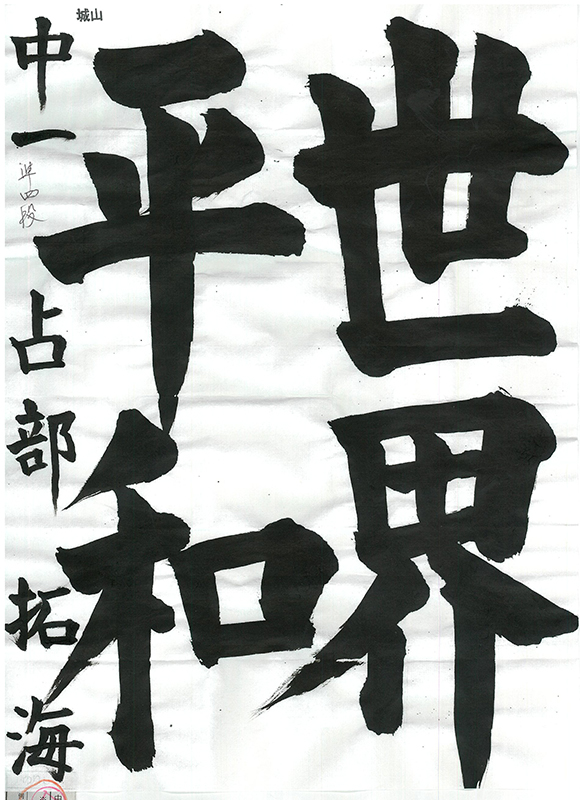 世界
平和
中一 準四段 占部 拓海
城山